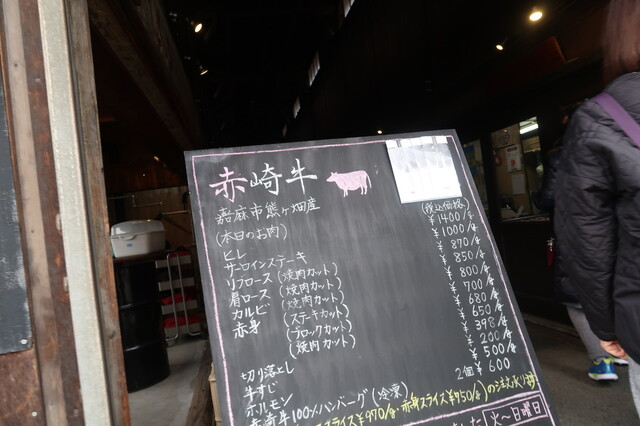 赤崎牛
嘉麻市熊ヶ畑産
(本日のお肉)
(税込価格)
ヒレ ¥1400/g
サーロインステーキ ¥1000/g
リブロース (焼肉カット) ¥870/g
肩ロース (焼肉カット) ¥850/g
カルビ (焼肉カット) ¥800/g
赤身 (ステーキカット) ¥700/g
(ブロックカット) ¥680/g
(焼肉カット) ¥650/g
切り落とし ¥398/g
牛すじ ¥200/g
ホルモン ¥500/g
赤崎牛100%ハンバーグ(冷凍) 2個 ¥600
スライス¥970/g・赤身スライス¥750/g)の注文承り
火〜日曜日